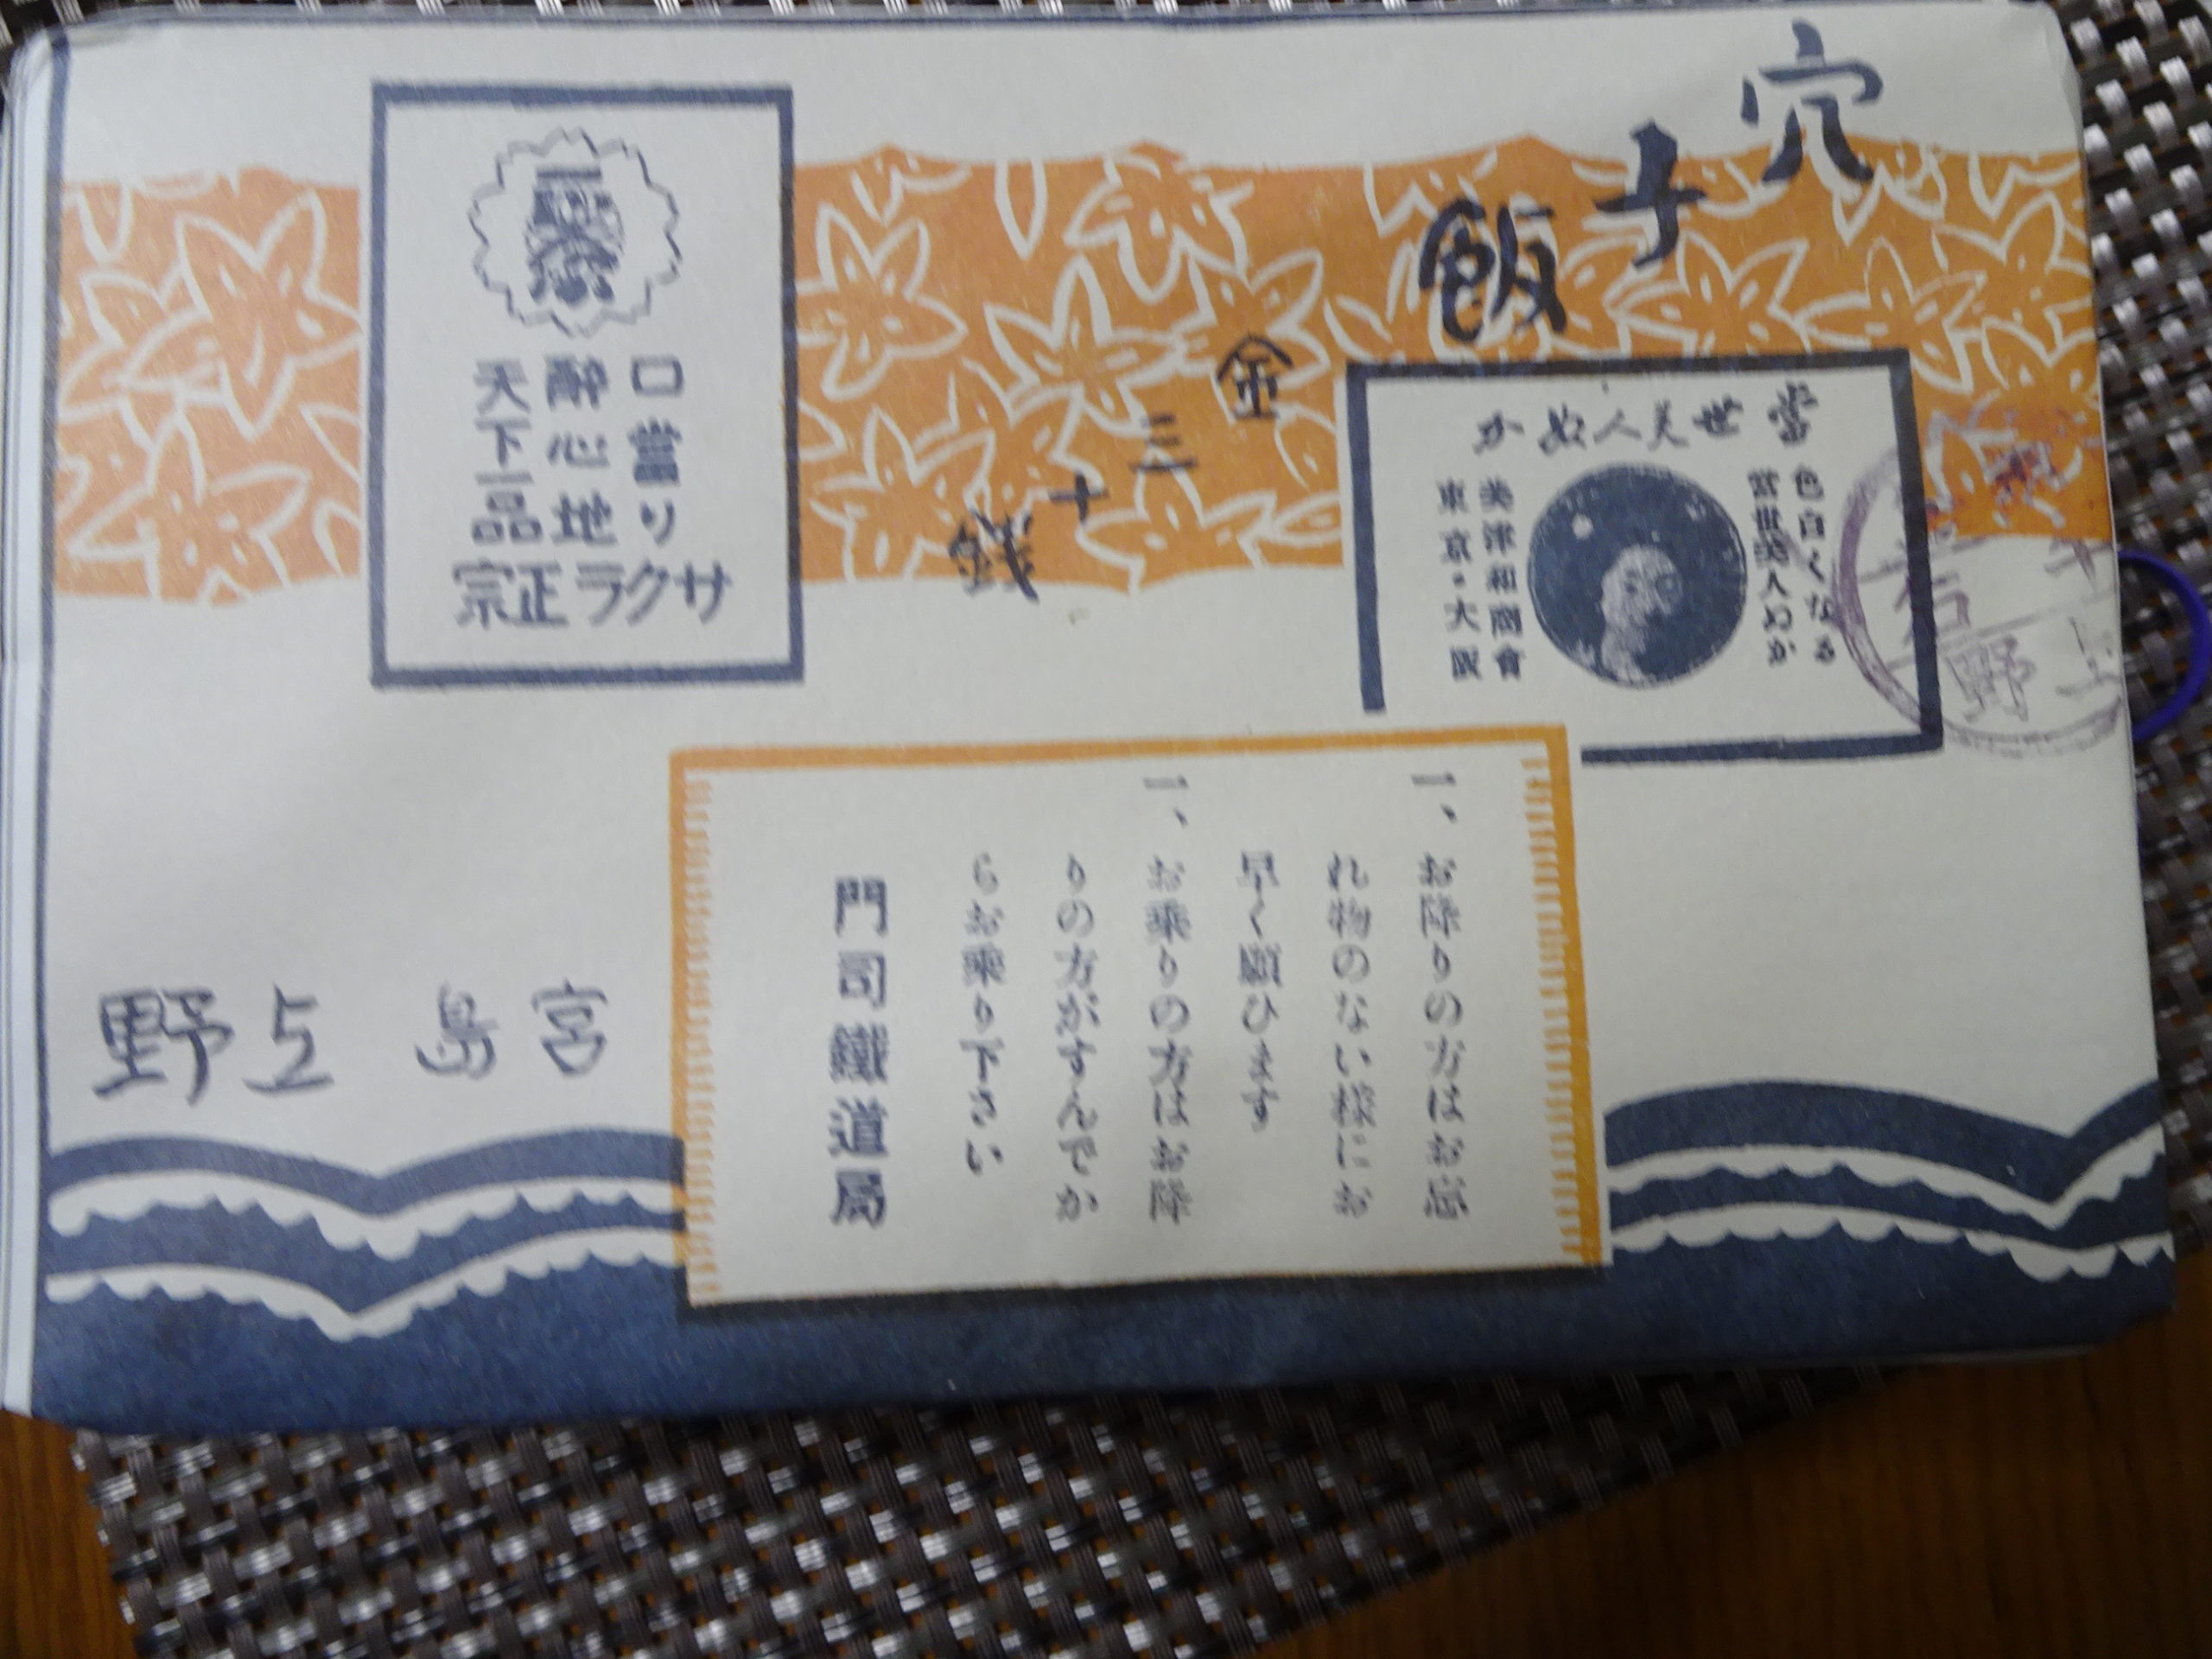 穴子飯
金三十銭
當世美人ぬか
色白くなる
當世美人ぬか
美津和商會
東京・大阪
口當り
醉心地
天下一品
サクラ正宗
一、お降りの方はお忘
れ物のない様にお
早く願ひます
一、お乗りの方はお降
りの方がすんでか
らお乗り下さい
門司鐵道局
宮島 上野
上野